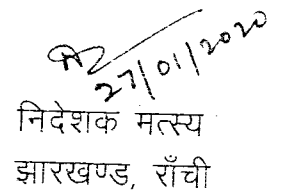 27/01/2020
निदेशक मत्स्य
झारखण्ड, राँची